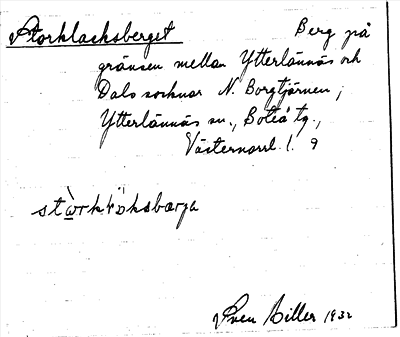 Storklacksberget Berg på
gränsen mellan Ytterlännäs och
Dals socknar N. Borgtjärnen,
Ytterlännäs sn., Boteå tg.,
Västernorrl. l. 9
Sven 1932